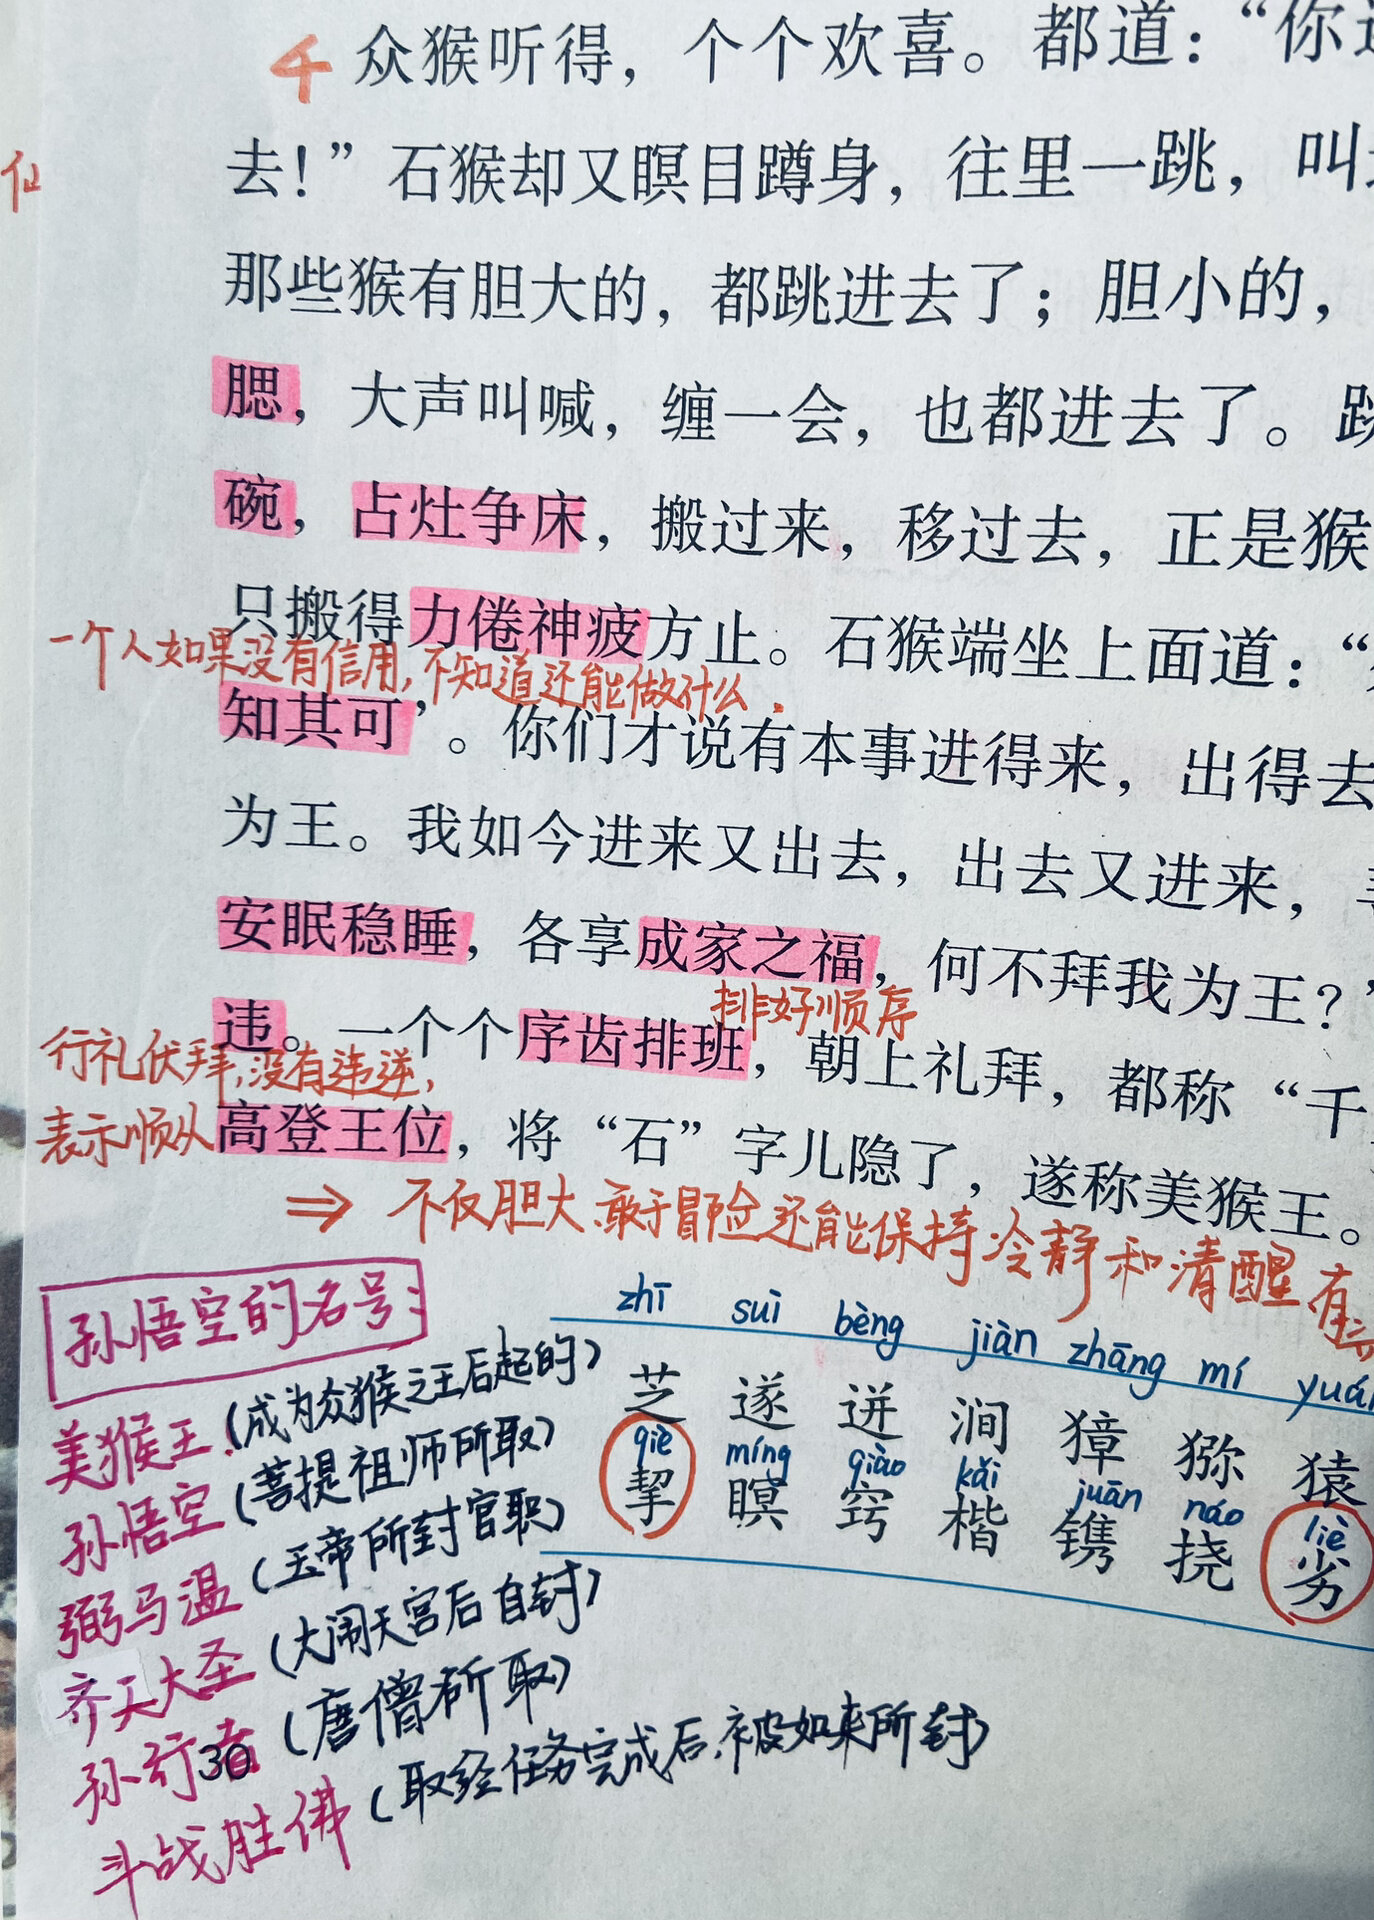 4 众猴听得，个个欢喜。都道：“你
去！”石猴却又瞑目蹲身，往里一跳，叫
仙
那些猴有胆大的，都跳进去了；胆小的，
腮，大声叫喊，缠一会，也都进去了。跳
碗，占灶争床，搬过来，移过去，正是猴
只搬得力倦神疲方止。石猴端坐上面道：“
一个人如果没有信用，不知道还能做什么。
知其可’。你们才说有本事进得来，出得去
为王。我如今进来又出去，出去又进来，
安眠稳睡，各享成家之福，何不拜我为王？”
排好顺序
违。一个个序齿排班，朝上礼拜，都称“千
行礼伏拜，没有违逆，
表示顺从
高登王位，将“石”字儿隐了，遂称美猴王。
⇒ 不仅胆大、敢于冒险还能保持冷静和清醒，有
孙悟空的名号：
zhī suì bèng jiàn zhāng mí yuán
芝 遂 迸 涧 獐 猕 猿
qiè míng qiào kǎi juān náo liè
挈 瞑 窍 楷 镌 挠 劣
美猴王（成为众猴之王后起的）
孙悟空（菩提祖师所取）
弼马温（玉帝所封官职）
齐天大圣（大闹天宫后自封）
孙行者（唐僧所取）
30
斗战胜佛（取经任务完成后，被如来所封）